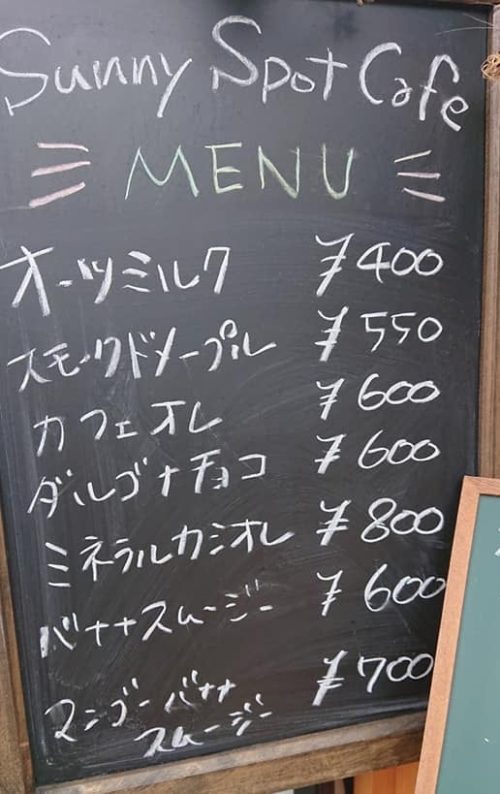 Sunny Spot Cafe
MENU
オーツミルク ¥400
スモークドメープル ¥550
カフェオレ ¥600
ダルゴナチョコ ¥600
ミネラルカミオレ ¥800
バナナスムージー ¥600
マンゴーバナナ ¥700
スムージー